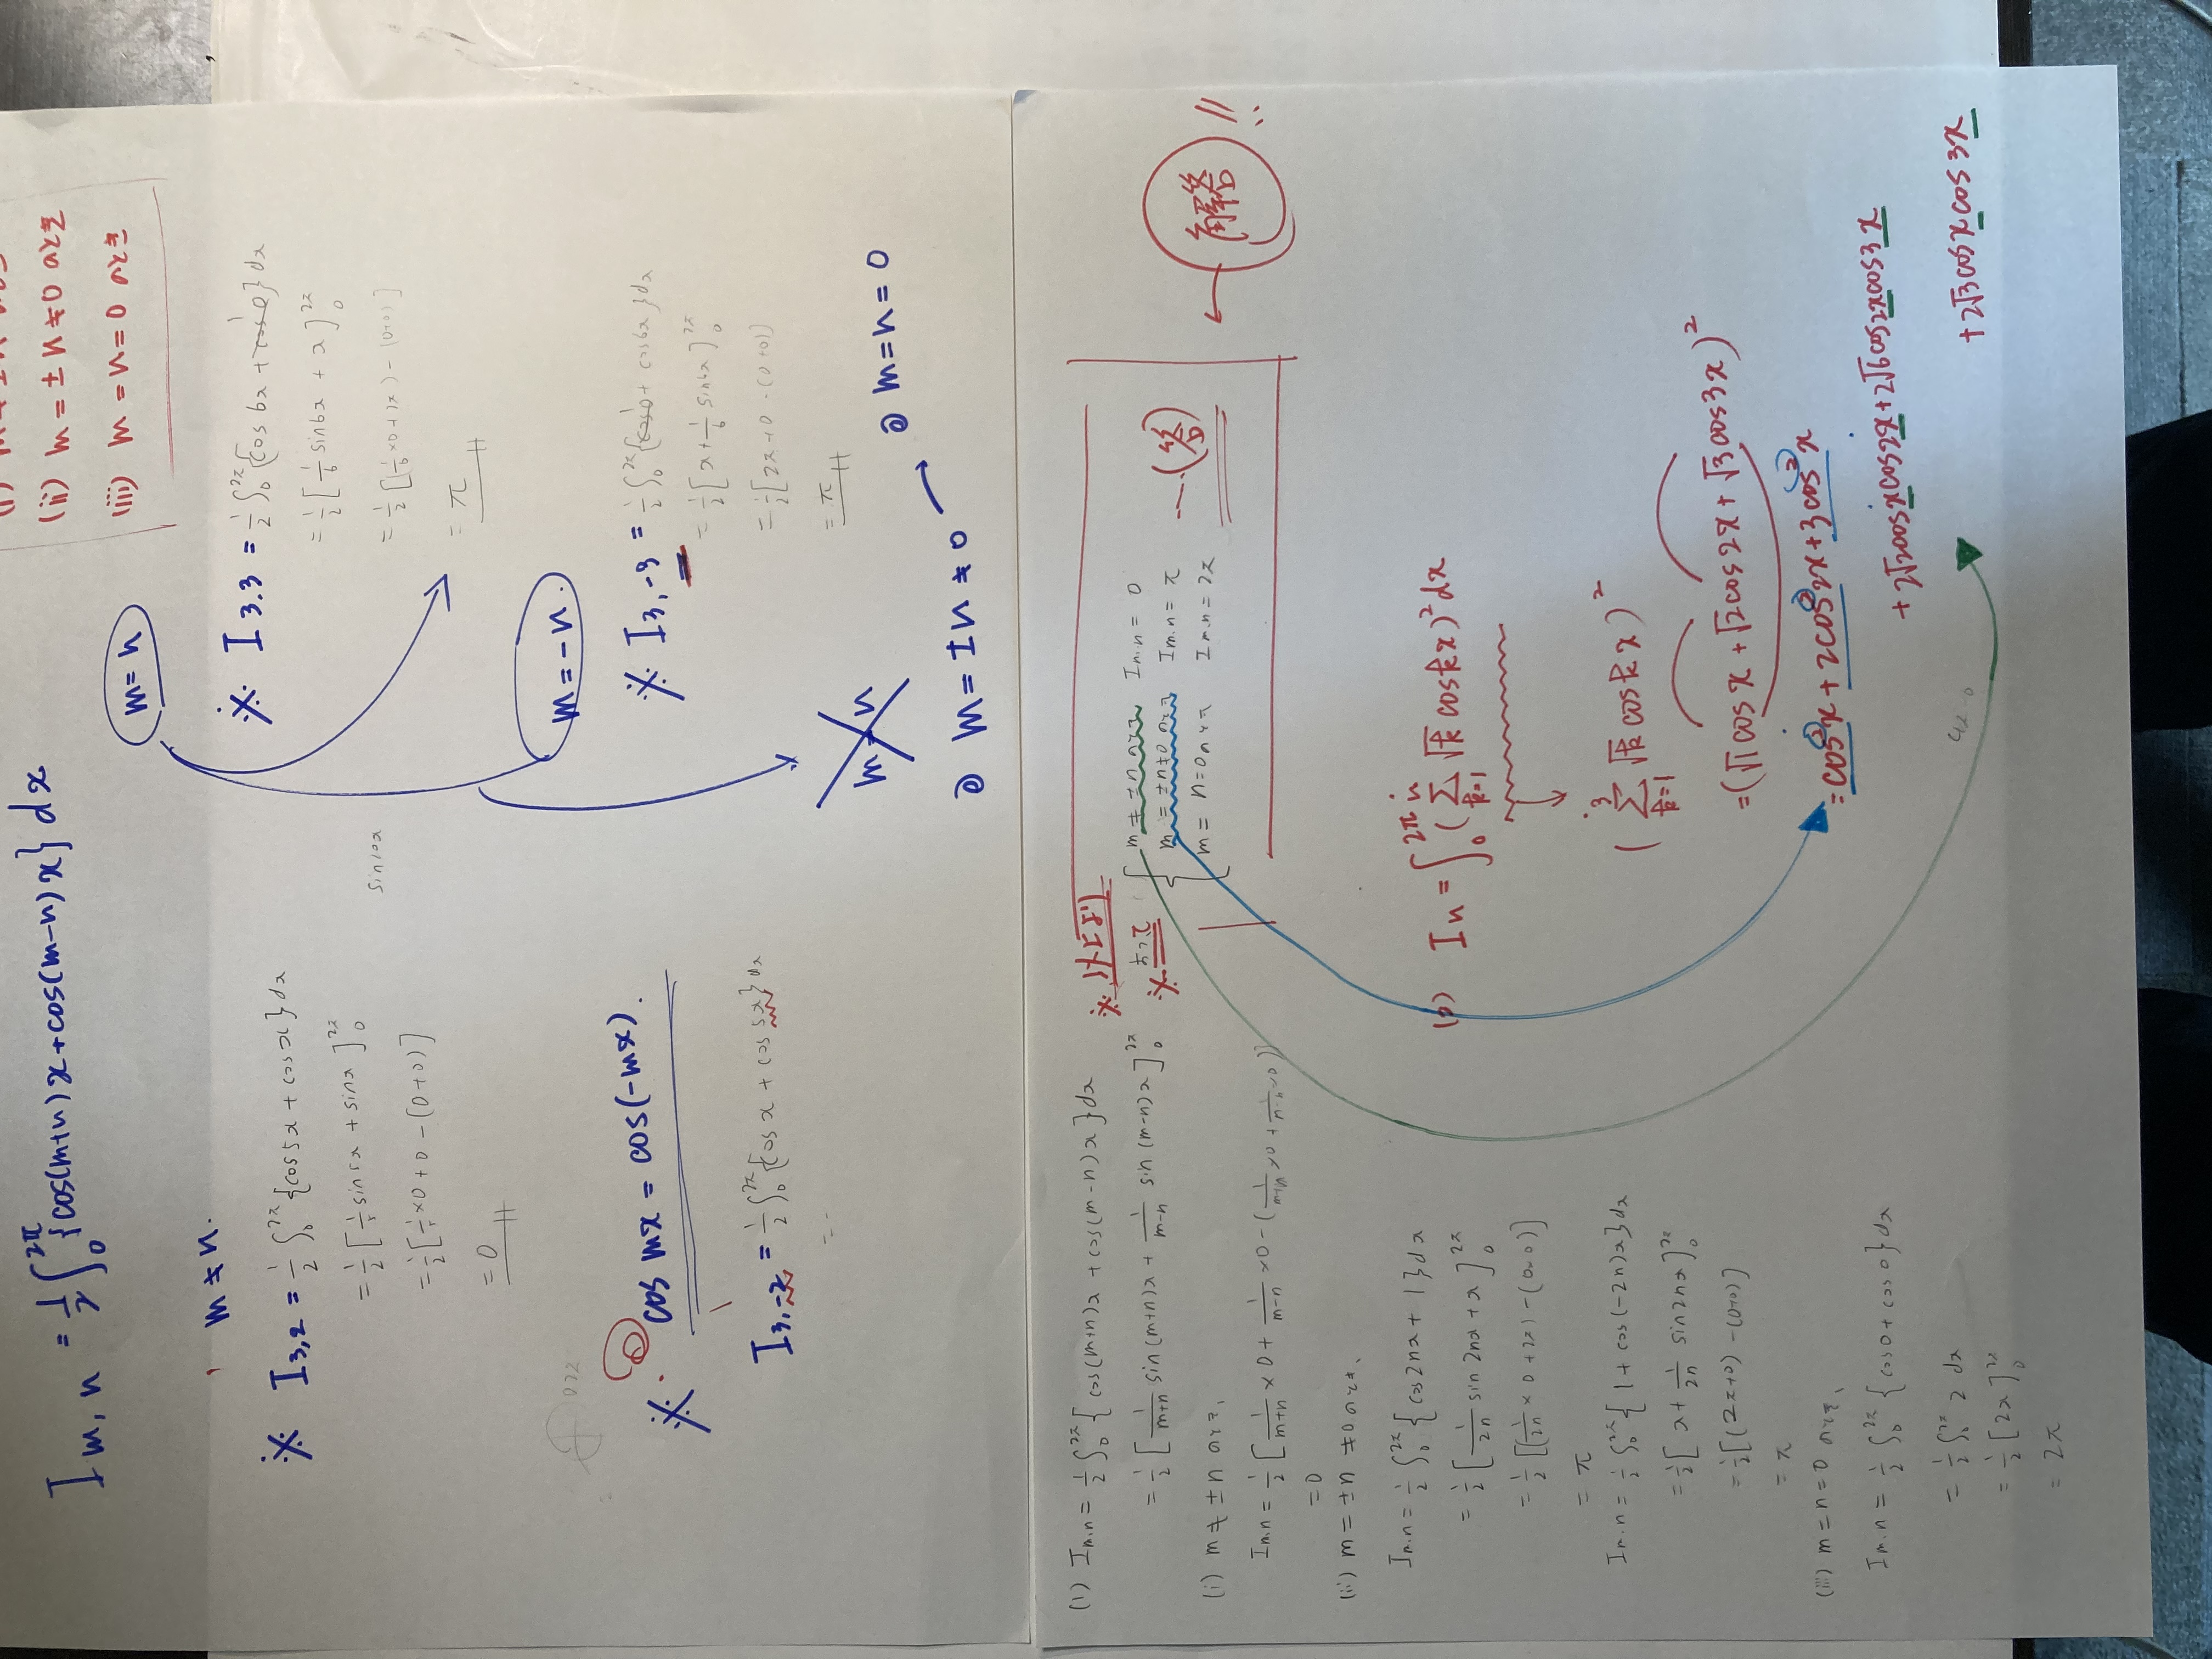 Im,n = 1/2 ∫₀^2π {cos(m+n)x+cos(m-n)x} dx
(ii) m=±n≠0のとき
(iii) m=n=0のとき
m≠n.
※ I3,2 = 1/2 ∫₀^2π {cos5x + cosx} dx
= 1/2 [1/5 sin5x + sinx]₀^2π
= 1/2 [1/5×0+0-(0+0)]
= 0
sin10x
※ cos mx = cos(-mx).
I3,-2 = 1/2 ∫₀^2π {cosx + cos5x} dx
= -
m=n
※ I3.3 = 1/2 ∫₀^2π {cos6x + cos0} dx
= 1/2 [1/6 sin6x + x]₀^2π
= 1/2 [1/6×0+2π)-(0+0)]
= π
m=-n.
※ I3,-3 = 1/2 ∫₀^2π {cos0 + cos6x} dx
= 1/2 [x + 1/6 sin6x]₀^2π
= 1/2 [2π+0-(0+0)]
= π
m=n
◎ m=±n≠0 → ◎ m=n=0
(1) Im.n = 1/2 ∫₀^2π {cos(m+n)x + cos(m-n)x} dx
= 1/2 [1/(m+n) sin(m+n)x + 1/(m-n) sin(m-n)x]₀^2π
(i) m≠±nのとき、
Im.n = 1/2 [1/(m+n)×0 + 1/(m-n)×0-(1/(m+n)×0 + 1/(m-n)×0)]
= 0
(ii) m=±n≠0のとき、
Im.n = 1/2 ∫₀^2π {cos2nx + 1} dx
= 1/2 [1/2n sin2nx + x]₀^2π
= 1/2 [(1/2n×0+2π)-(0+0)]
= π
Im.n = 1/2 ∫₀^2π {1 + cos(-2n)x} dx
= 1/2 [x + 1/2n sin2nx]₀^2π
= 1/2 [(2π+0)-(0+0)]
= π
(iii) m=n=0のとき、
Im.n = 1/2 ∫₀^2π {cos0 + cos0} dx
= 1/2 ∫₀^2π 2 dx
= 1/2 [2x]₀^2π
= 2π
※ 以上より
※ よって
m≠±nのとき Im.n = 0
m=±n≠0のとき Im.n = π
m=n=0のとき Im.n = 2π
---(答)
← 解答!!
(2) In = ∫₀^2π (Σ_{k=1}^n √k cos kx)² dx
(Σ_{k=1}^3 √k cos kx)²
= (√1 cosx + √2 cos2x + √3 cos3x)²
= cos²x + 2cos²2x + 3cos²x
+ 2√2cosxcos2x + 2√6cos2xcos3x
+ 2√3cosxcos3x